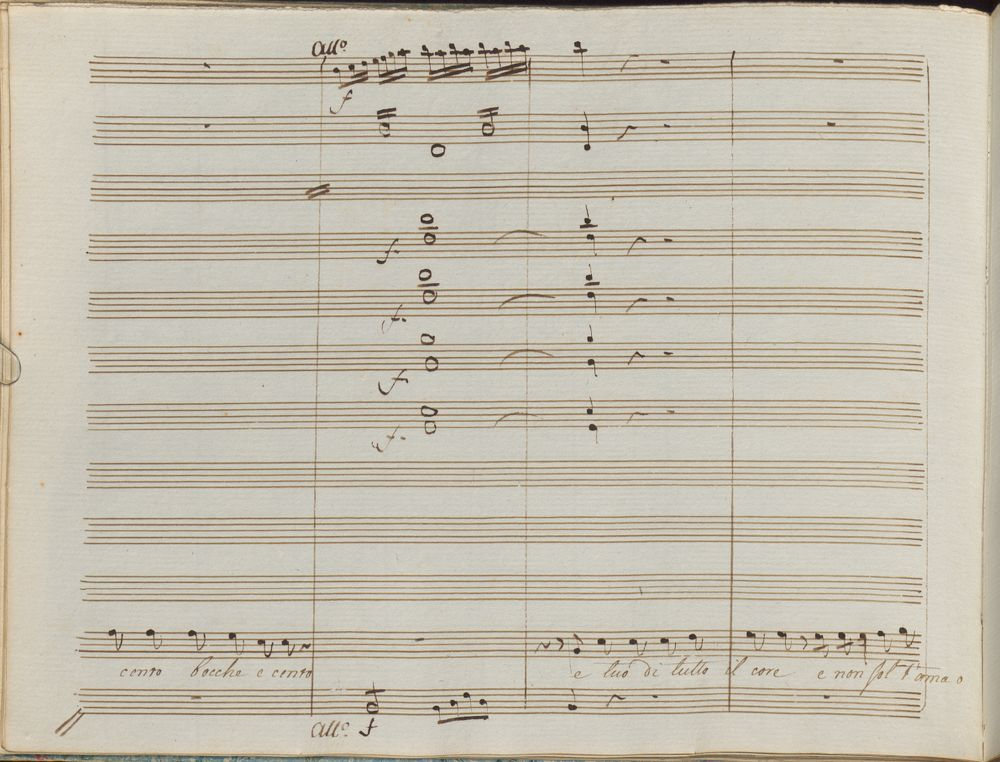 All.º
f
f.
f.
f
f.
cento bocche e cento e tuo di tutto il core e non sol t'ama o
All.º f